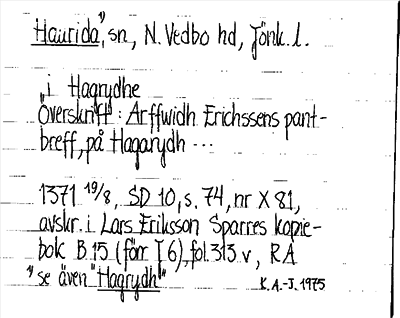 Haurida ¹⁾, sn, N. Vedbo hd, Jönk. l.
"i Hagrydhe
Överskrift: Arffwidh Erichssens pant-
breff, på Hagarydh ...
1371 19/8, SD 10, s. 74, nr X 81,
avskr. i Lars Eriksson Sparres kopie-
bok B 15 (förr I 6), fol. 313 v, RA
¹⁾ se även "Hagrydh"
K. A.-J. 1975